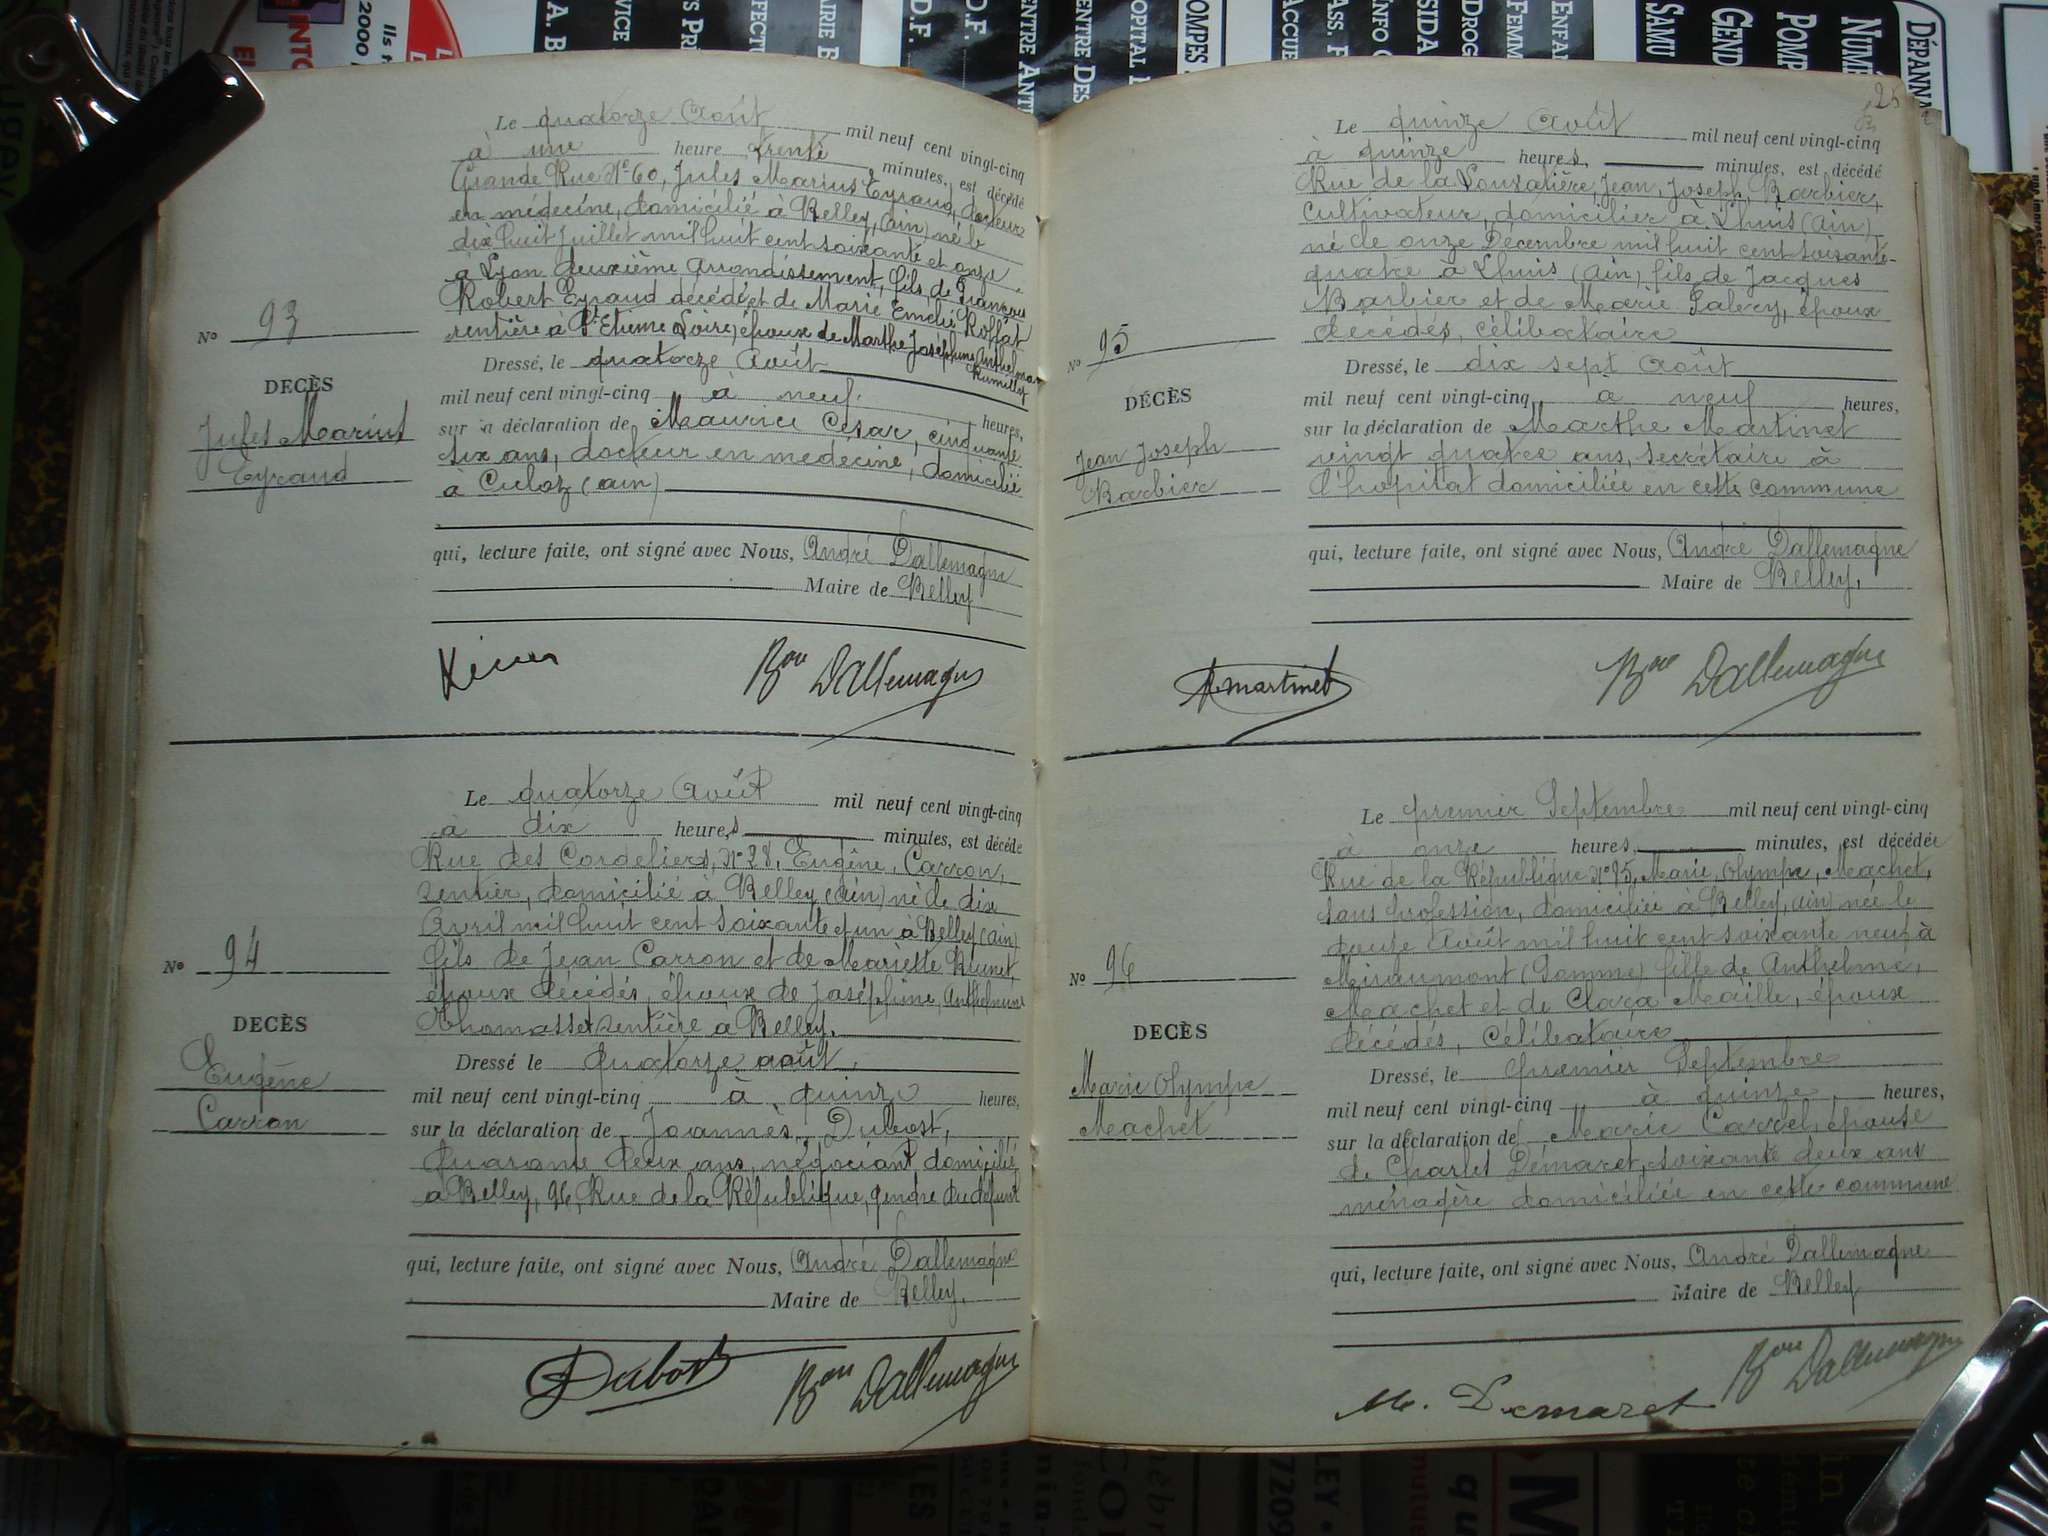 Le quatorze Août mil neuf cent vingt-cinq
à une heure trente minutes, est décédé
Grande Rue Nº 60, Jules Marius Eyraud, docteur
en médecine, domicilié à Belley, (ain) né le
dix huit Juillet mil huit cent soixante et onze
à Lyon deuxième Arrondissement, fils de François
Robert Eyraud décédé et de Marie Emélie Roffat
rentière à St Etienne (Loire) époux de Marthe Joséphine
Rumilly
No 93
DECÈS
Jules Marius
Eyraud
Dressé, le quatorze Août
mil neuf cent vingt-cinq à neuf heures,
sur la déclaration de Maurice César, cinquante
six ans, docteur en médecine, domicilié
a Culoz (ain)
qui, lecture faite, ont signé avec Nous, André Dallemagne
Maire de Belley
Bon Dallemagne
Le quatorze Août mil neuf cent vingt-cinq
à dix heures minutes, est décédé
Rue des Cordeliers, Nº 28, Eugène, Carron,
rentier, domicilié à Belley (ain) né le dix
Avril mil huit cent soixante et un à Belley (ain)
fils de Jean Carron et de Mariette Brunet,
époux décédés, époux de Joséphine, Anthelmine
Thomasset rentière à Belley.
No 94
DECÈS
Eugène
Carron
Dressé le quatorze août,
mil neuf cent vingt-cinq à quinze heures,
sur la déclaration de Joannès, Dubost,
quarante deux ans, négociant domicilié
a Belley, 96, Rue de la République, gendre du défunt
qui, lecture faite, ont signé avec Nous, André Dallemagne
Maire de Belley,
Dubost Bon Dallemagne
25
Le quinze Août mil neuf cent vingt-cinq
à quinze heures minutes, est décédé
Rue de la Jean, Joseph, Barbier,
cultivateur, domicilier à Lhuis (ain)
né le onze Décembre mil huit cent soixante-
quatre à Lhuis (ain) fils de Jacques
Barbier et de Marie époux
décédés, célibataire
No 95
DÉCÈS
Jean Joseph
Barbier
Dressé, le dix sept Août
mil neuf cent vingt-cinq, à neuf heures,
sur la déclaration de Marthe Martinet
vingt quatre ans, secrétaire à
l'hopital domiciliée en cette commune
qui, lecture faite, ont signé avec Nous, André Dallemagne
Maire de Belley,
Martinet Bon Dallemagne
Le premier Septembre mil neuf cent vingt-cinq
à onze heures, minutes, est décédée
Rue de la République Nº 25, Marie, Olympe, Machet,
sans profession, domiciliée à Belley, (ain) née le
douze Août mil huit cent soixante neuf à
Miraumont (Somme) fille de Anthelme,
Machet et de Clara Maille, époux
décédés, Célibataire
No 96
DECÈS
Marie Olympe
Machet
Dressé, le premier Septembre
mil neuf cent vingt-cinq à quinze heures,
sur la déclaration de Marie Carrel, épouse
de Charles Démaret, soixante deux ans
ménagère domiciliée en cette commune
qui, lecture faite, ont signé avec Nous, André Dallemagne
Maire de Belley
M. Demaret Bon Dallemagne
DÉPANNA
NUMÉ
POMP
GEND
SAMU